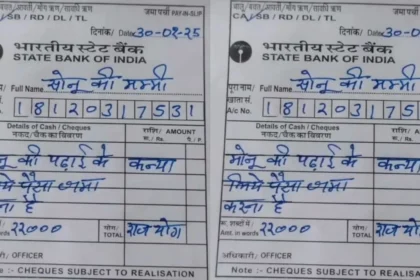 CA/SB / RD / DL / TL
जमा पर्ची PAY-IN-SLIP
दिनांक / Date 30-01-25
भारतीय स्टेट बैंक
STATE BANK OF INDIA
Full Name सोनू की मम्मी
A/c No. 18120317531
Details of Cash / Cheques
राशि / AMOUNT
नकद/चैक का विवरण
रु. / Rs. पै. / P
की पढ़ाई के कन्या
लिये पैसा जमा
है
२२०००
योग/ TOTAL राज योग
अधिकारी / OFFICER
Note :- CHEQUES SUBJECT TO REALISATION
CA/SB / RD / DL / TL
जमा पर्ची
दिनांक / Date 30-0
भारतीय स्टेट बैंक
STATE BANK OF INDIA
पूरा नाम / Full Name सोनू की मम्मी
खाता सं.
A/c No. 1812031753
Details of Cash / Cheques
राशि / AMOUNT
नकद/चैक का विवरण
रु. / Rs.
मोनू की पढ़ाई के कन्या
लिये पैसा जमा
करना है
रु. शब्दों में
Amt. in words २२०००
योग/ TOTAL राज योग
अधिकारी / OFFICER
Note :- CHEQUES SUBJECT TO REALISATION